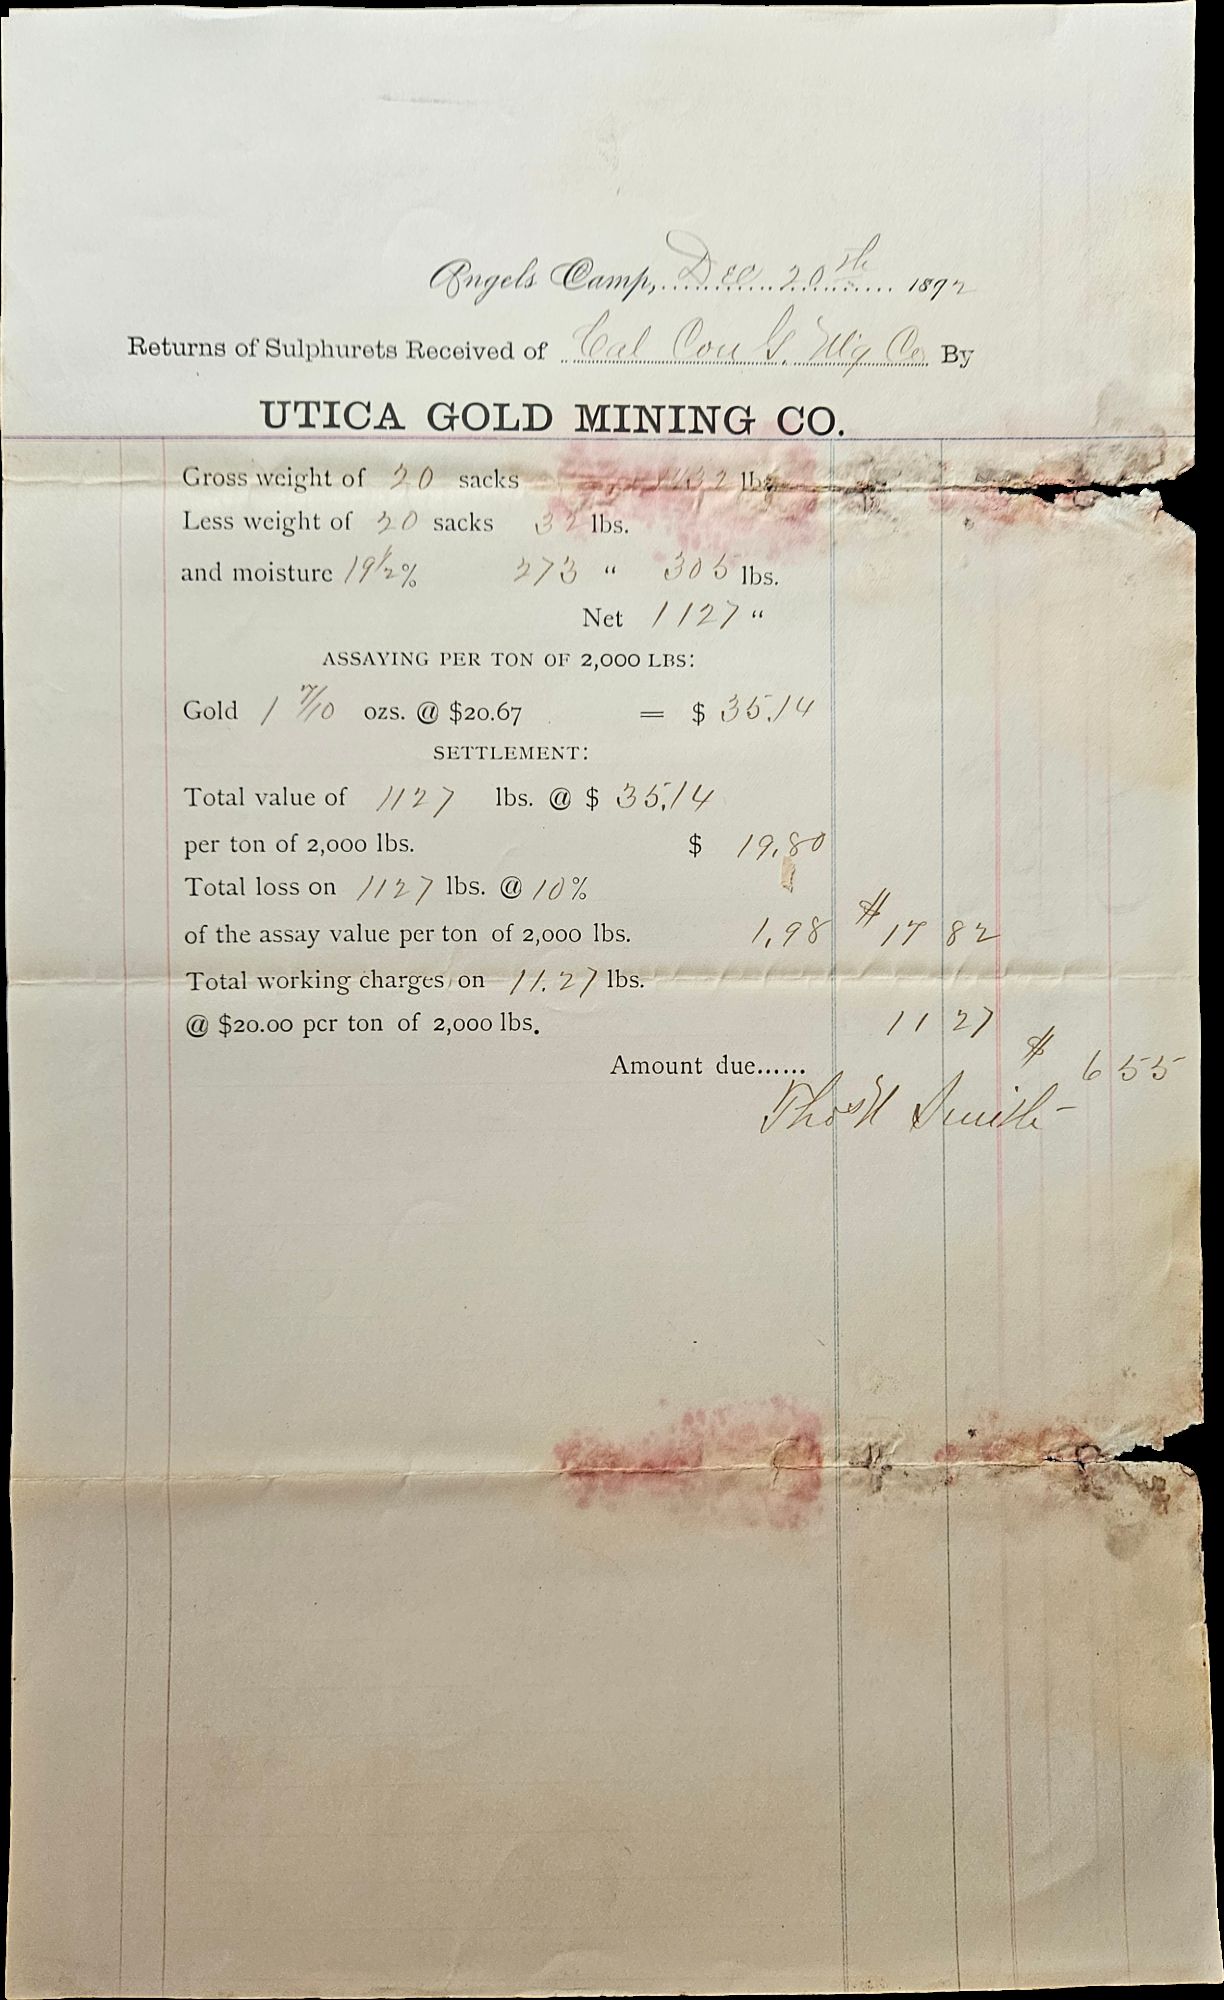 Angels Camp, Dec 20th 1892
Returns of Sulphurets Received of Cal Con G. M'g Co By
UTICA GOLD MINING CO.
Gross weight of 20 sacks 1432 lbs.
Less weight of 20 sacks 32 lbs.
and moisture 19 1/2 % 273 " 305 lbs.
Net 1127 "
ASSAYING PER TON OF 2,000 LBS:
Gold 1 7/10 ozs. @ $20.67 = $ 35.14
SETTLEMENT:
Total value of 1127 lbs. @ $ 35.14
per ton of 2,000 lbs. $ 19.80
Total loss on 1127 lbs. @ 10%
of the assay value per ton of 2,000 lbs. 1.98 $ 17 82
Total working charges on 11.27 lbs.
@ $20.00 per ton of 2,000 lbs. 11 27
Amount due...... $ 6 55
Thos H Smith